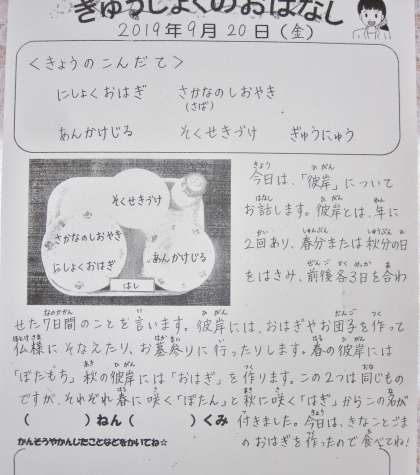 きゅうしょくのおはなし
2019年9月20日(金)
<きょうのこんだて>
にしょくおはぎ　さかなのしおやき
(さば)
あんかけじる　そくせきづけ　ぎゅうにゅう
そくせきづけ
さかなのしおやき
にしょくおはぎ
あんかけじる
はし
今日は、「彼岸」について
お話します。彼岸とは、年に
2回あり、春分または秋分の日
をはさみ、前後各3日を合わ
せた7日間のことを言います。彼岸には、おはぎやお団子を作って
仏様にそなえたり、お墓参りに行ったりします。春の彼岸には
「ぼたもち」秋の彼岸には「おはぎ」を作ります。この2つは同じもの
ですが、それぞれ春に咲く「ぼたん」と秋に咲く「はぎ」からこの名が
(　　)ねん(　　)くみ
付きました。今日は、きなことごま
かんそうやかんしたことなどをかいてね☆
のおはぎを作ったので食べてね!